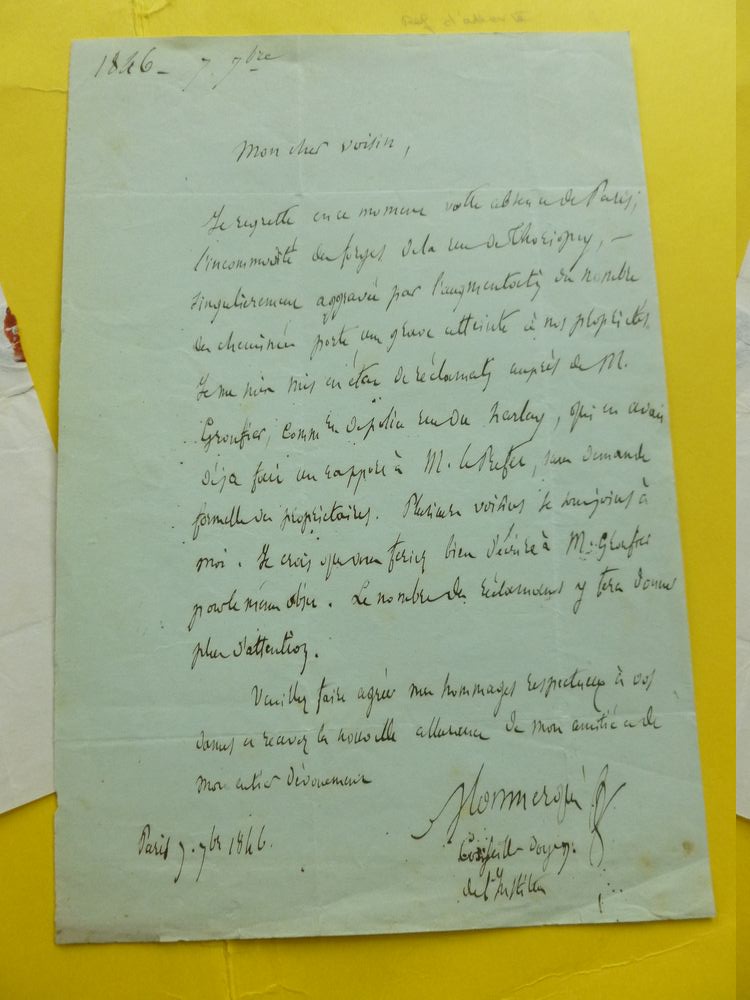 1846 - 7. 7bre
Mon cher voisin,
Je regrette en ce moment votre absence de Paris;
l'incommodité des forges de la rue de Thorigny, -
singulierement aggravée par l'augmentation du nombre
des cheminées porte une grave atteinte à nos propriétés.
Je me suis mis en état de réclamation auprès de M.
comm de police rue du harlay, qui en avait
déja fait un rapport à M. le Prefet, sans demande
formelle des propriétaires. Plusieurs voisins se sont joints à
moi. Je crois que vous feriez bien d'écrire à M.
pour le même objet. Le nombre des réclamants y fera donner
plus d'attention.
Veuillez faire agréer mes hommages respectueux à vos
dames et recevez la nouvelle assurance de mon amitié et de
mon entier dévouement
Monmerqué
Conseiller doyen.
de l'Institut
Paris 7. 7bre 1846.